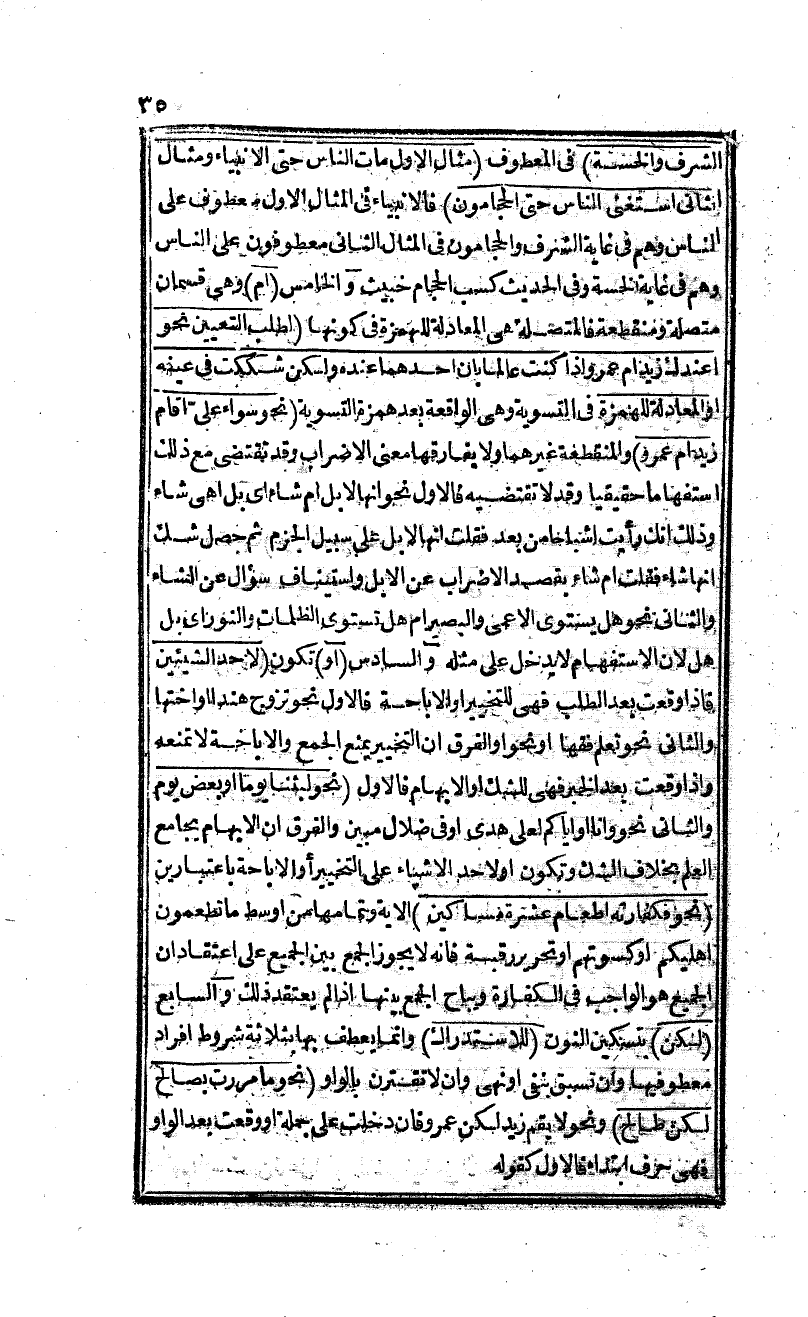 ٣٥
الشرف والخسة) فى المعطوف (مثال الاول مات الناس حتى الانبياء ومثال
الثانى استغنى الناس حتى الحجامون) فالانبياء فى المثال الاول معطوف على
الناس وهم فى غاية الشرف والحجامون فى المثال الثانى معطوفون على الناس
وهم فى غاية الخسة وفى الحديث كسب الحجام خبيث و الخامس (ام) وهى قسمان
متصلة ومنقطعة فالمتصلة هى المعادلة للهمزة فى كونها (لطلب التعيين نحو
اعندك زيد ام عمرو اذا كنت عالما بان احدهما عنده ولكن شككت فى عينه
او المعادلة للهمزة فى التسوية وهى الواقعة بعد همزة التسوية (نحو سواء على اقام
زيد ام عمرو) والمنقطعة غيرهما ولا يفارقها معنى الاضراب وقد تقتضى مع ذلك
استفهاما حقيقيا وقد لا تقتضيه فالاول نحو انها لابل ام شاء اى بل اهى شاء
وذلك انك رأيت اشباخا من بعد فقلت انها لابل على سبيل الجزم ثم حصل شك
انها شاء فقلت ام شاء بقصد الاضراب عن الابل واستيناف سؤال عن الشاء
والثانى نحو هل يستوى الاعمى والبصير ام هل تستوى الظلمات والنور اى بل
هل لان الاستفهام لا يدخل على مثله و السادس (او) تكون (لاحد الشيئين
فاذا وقعت بعد الطلب فهى للتخيير او الاباحة فالاول نحو تزوج هندا او اختها
والثانى نحو تعلم فقها او نحوا والفرق ان التخيير يمنع الجمع والاباحة لا تمنعه
واذا وقعت بعد الخبر فهى للشك او الابهام فالاول (نحو لبثنا يوما او بعض يوم
والثانى نحو وانا او اياكم لعلى هدى او فى ضلال مبين والفرق ان الابهام يجامع
العلم بخلاف الشك وتكون او لاحد الاشياء على التخيير أو الاباحة باعتبارين
(نحو فكفارته اطعام عشرة مساكين) الاية وتمامها من اوسط ما تطعمون
اهليكم او كسوتهم او تحرير رقبة فانه لا يجوز الجمع بين الجميع على اعتقاد ان
الجميع هو الواجب فى الكفارة ويباح الجمع بينها اذا لم يعتقد ذلك و السابع
(لكن) بتسكين النون (للاستدراك) وانما يعطف بها بثلاثة شروط افراد
معطوفيها وان تسبق بنفى او نهى وان لا تقترن بالواو (نحو ما مررت بصالح
لكن طالح) ونحو لا يقم زيد لكن عمرو فان دخلت على جملة او وقعت بعد الواو
فهى حرف ابتداء فالاول كقوله